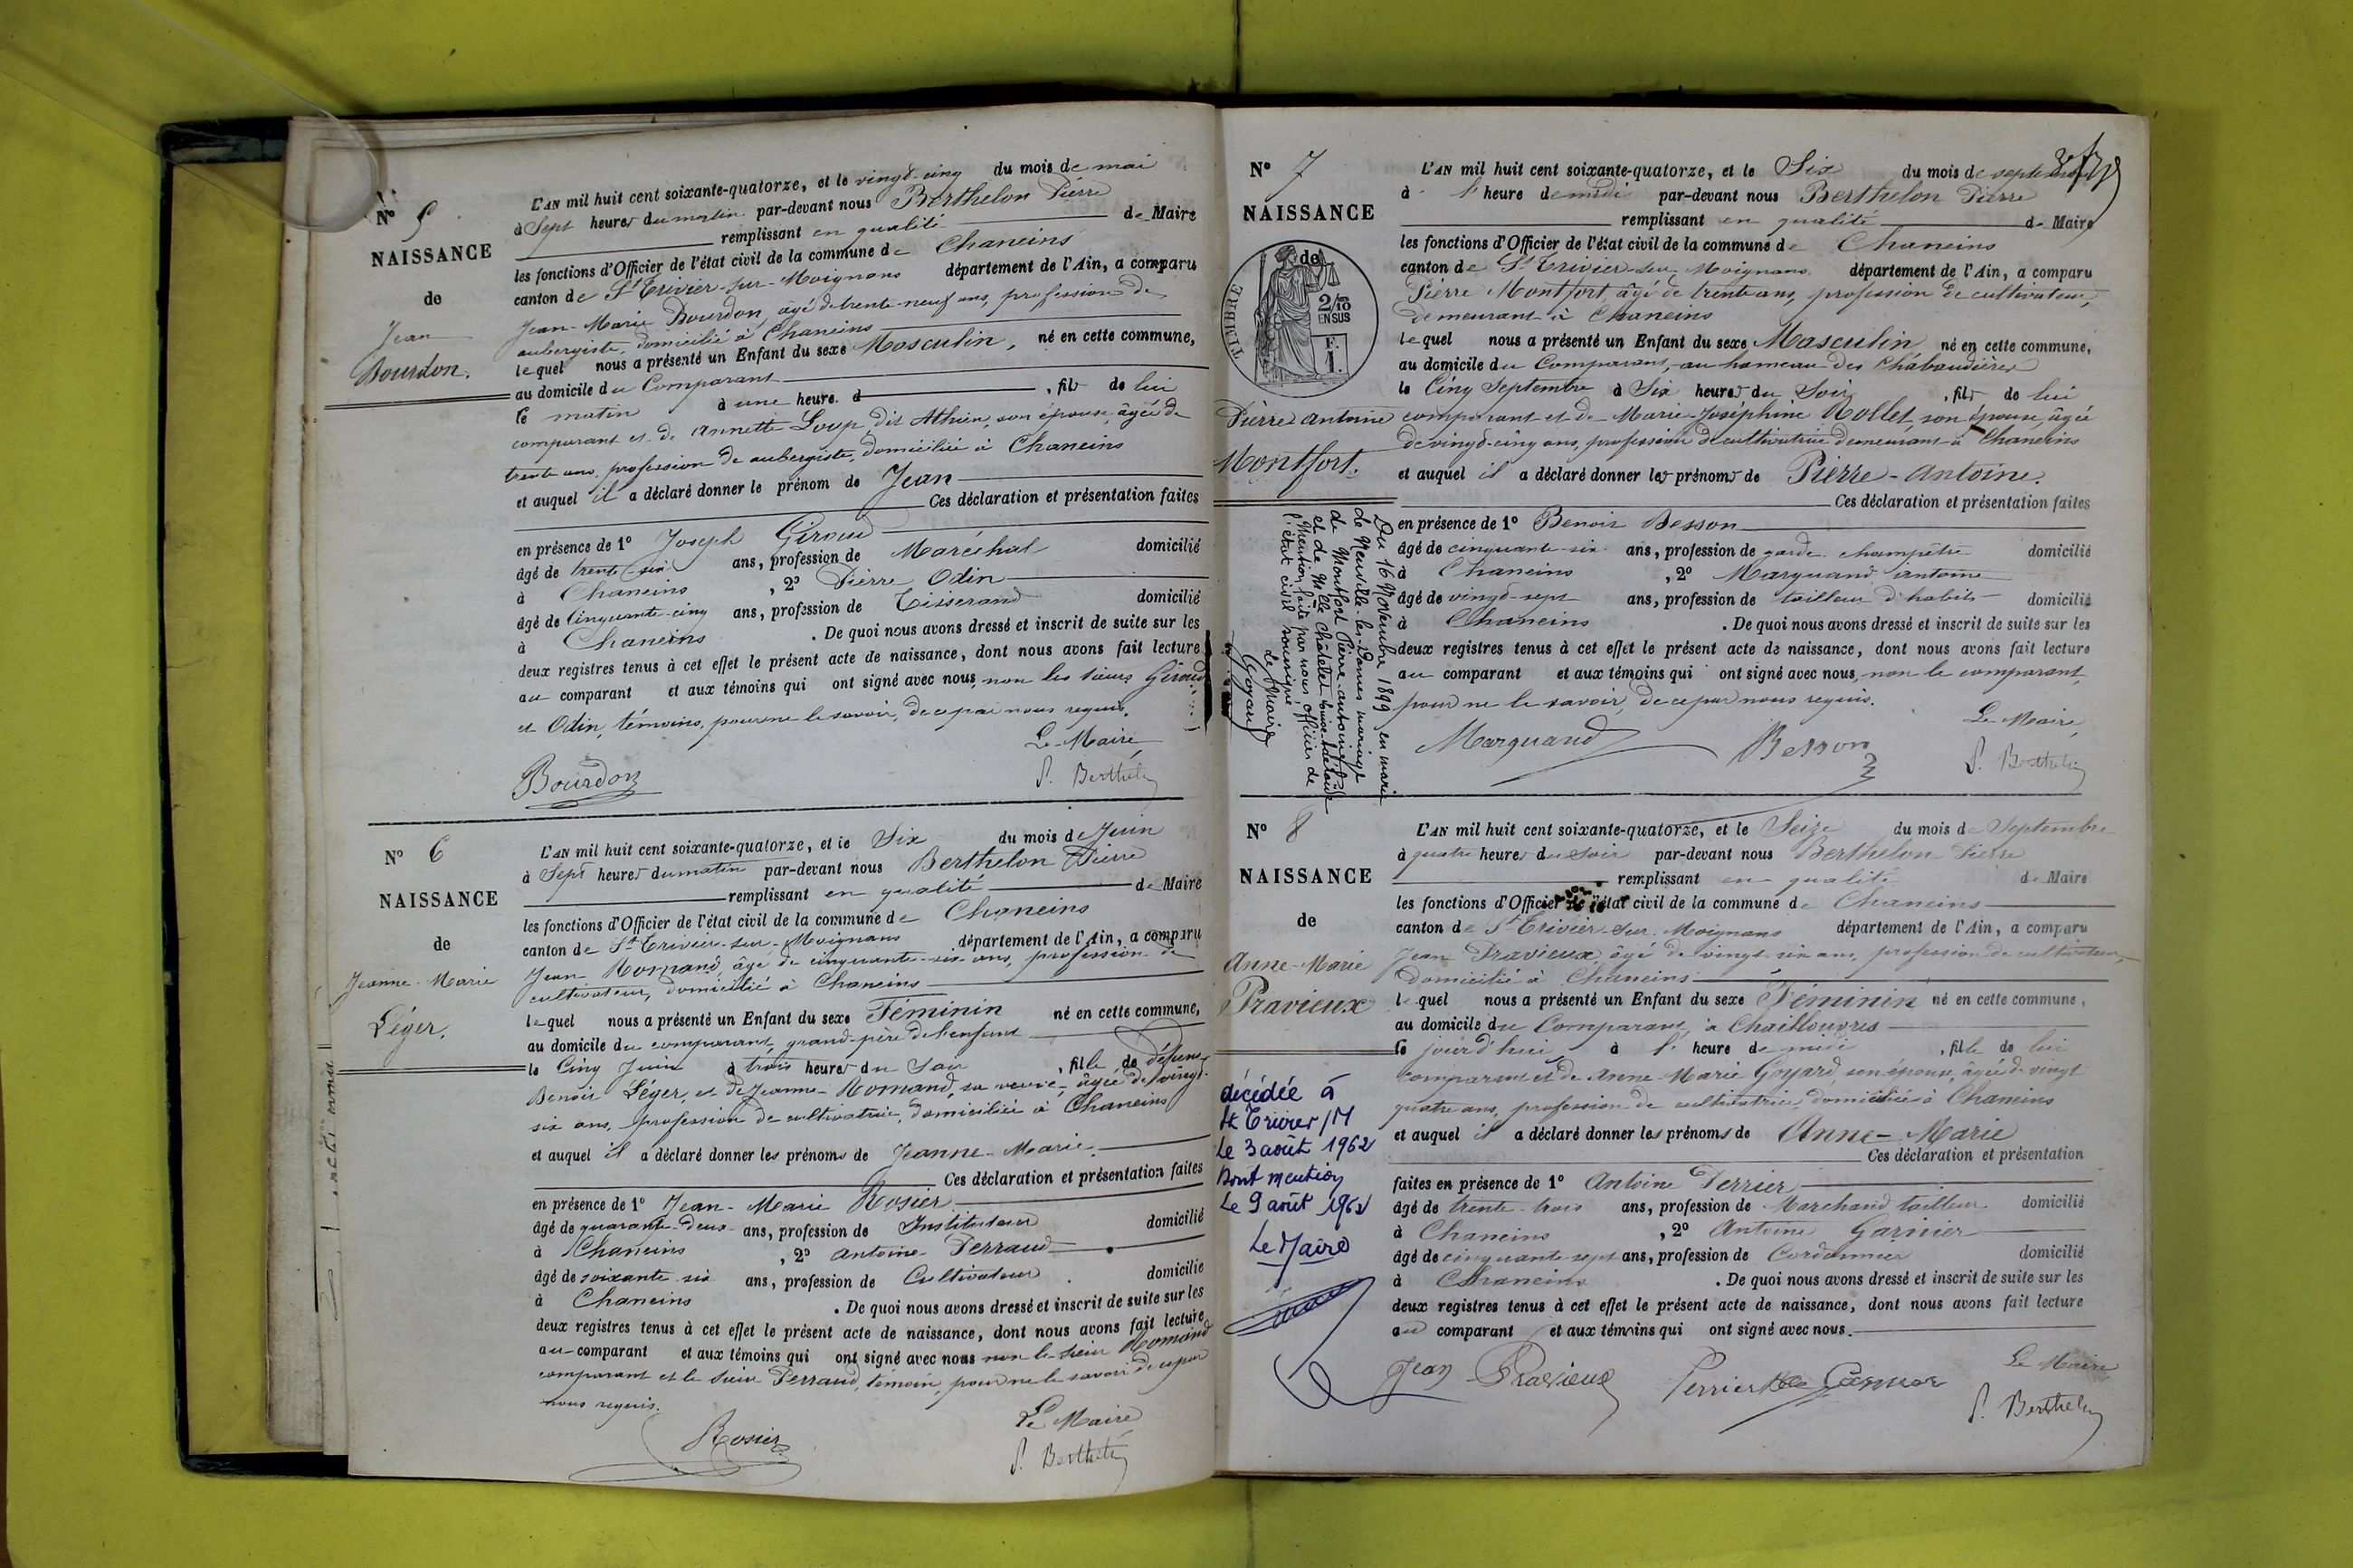 N° 5
NAISSANCE
de
Jean
Bourdon.
L'AN mil huit cent soixante-quatorze, et le vingt-cinq du mois de mai
à Sept heures du matin par-devant nous Berthelon Pierre
remplissant en qualité de Maire
les fonctions d'Officier de l'état civil de la commune de Chaneins
canton de St Trivier-sur-Moignans département de l'Ain, a comparu
Jean-Marie Bourdon, âgé de trente-neuf ans, profession de
aubergiste, domicilié à Chaneins
lequel nous a présenté un Enfant du sexe Masculin, né en cette commune,
au domicile du Comparant
le matin à une heure d , fils de lui
comparant et de Annette Loup dit Athien, son épouse, âgée de
trente ans, profession de aubergiste, domiciliée à Chaneins
et auquel il a déclaré donner le prénom de Jean
Ces déclaration et présentation faites
en présence de 1° Joseph Giroud
âgé de trente-six ans, profession de Maréchal domicilié
à Chaneins , 2° Pierre Odin
âgé de Cinquante-cinq ans, profession de Tisserand domicilié
à Chaneins . De quoi nous avons dressé et inscrit de suite sur les
deux registres tenus à cet effet le présent acte de naissance, dont nous avons fait lecture
au comparant et aux témoins qui ont signé avec nous, non les sieurs Giroud
et Odin, témoins, pour ne le savoir, de ce par nous requis.
Le Maire
Bourdon P. Berthelon
N° 6
NAISSANCE
de
Jeanne-Marie
Léger.
L'AN mil huit cent soixante-quatorze, et le Six du mois de Juin
à Sept heures du matin par-devant nous Berthelon Pierre
remplissant en qualité de Maire
les fonctions d'Officier de l'état civil de la commune de Chaneins
canton de St Trivier-sur-Moignans département de l'Ain, a comparu
Jean Romand, âgé de cinquante-six ans, profession de
cultivateur, domicilié à Chaneins
lequel nous a présenté un Enfant du sexe Féminin né en cette commune,
au domicile du comparant, grand-père de l'enfant
le Cinq Juin à trois heures du Soir , fille de défunt
Benoit Léger, et de Jeanne Romand, sa veuve, âgée de vingt-
six ans, profession de cultivatrice, domiciliée à Chaneins
et auquel il a déclaré donner les prénoms de Jeanne-Marie.
Ces déclaration et présentation faites
en présence de 1° Jean-Marie Rosier
âgé de quarante-deux ans, profession de Instituteur domicilié
à Chaneins , 2° Antoine Perraud
âgé de soixante-six ans, profession de Cultivateur domicilié
à Chaneins . De quoi nous avons dressé et inscrit de suite sur les
deux registres tenus à cet effet le présent acte de naissance, dont nous avons fait lecture
au comparant et aux témoins qui ont signé avec nous non le sieur Romand
comparant et le sieur Perraud, témoin, pour ne le savoir de ce par
nous requis.
Le Maire
Rosier P. Berthelon
N° 7
NAISSANCE
de
TIMBRE
2/10 EN SUS
F. 1.
Pierre Antoine
Montfort.
L'AN mil huit cent soixante-quatorze, et le Six du mois de septembre
à l' heure de midi par-devant nous Berthelon Pierre
remplissant en qualité de Maire
les fonctions d'Officier de l'état civil de la commune de Chaneins
canton de St Trivier-sur-Moignans département de l'Ain, a comparu
Pierre Montfort, âgé de trente ans, profession de cultivateur,
demeurant à Chaneins
lequel nous a présenté un Enfant du sexe Masculin né en cette commune,
au domicile du Comparant, au hameau des Chabaudières
le Cinq Septembre à Six heures du Soir , fils de lui
comparant et de Marie-Joséphine Rollet, son épouse, âgée
de vingt-cinq ans, profession de cultivatrice demeurant à Chaneins
et auquel il a déclaré donner les prénoms de Pierre-Antoine.
Ces déclaration et présentation faites
en présence de 1° Benoit Besson
âgé de cinquante-six ans, profession de garde champêtre domicilié
à Chaneins , 2° Marquand Antoine
âgé de vingt-sept ans, profession de tailleur d'habits domicilié
à Chaneins . De quoi nous avons dressé et inscrit de suite sur les
deux registres tenus à cet effet le présent acte de naissance, dont nous avons fait lecture
au comparant et aux témoins qui ont signé avec nous, non le comparant,
pour ne le savoir, de ce par nous requis.
Le Maire,
Marquand Besson P. Berthelon
Du 16 Novembre 1899, en mairie
de Neuville-les-Dames mariage
de Montfort Pierre-antoine
et de Mlle Châtelet Louise
Mention faite par nous officier de
l'état civil soussigné
le Maire
Goyard
N° 8
NAISSANCE
de
Anne-Marie
Pravieux
L'AN mil huit cent soixante-quatorze, et le Seize du mois de Septembre
à quatre heures du Soir par-devant nous Berthelon Pierre
remplissant en qualité de Maire
les fonctions d'Officier de l'état civil de la commune de Chaneins
canton de St Trivier-sur-Moignans département de l'Ain, a comparu
Jean Pravieux, âgé de vingt-six ans, profession de cultivateur,
domicilié à Chaneins
lequel nous a présenté un Enfant du sexe Féminin né en cette commune,
au domicile du Comparant, à Chaillouvres
le jour d'hui à l' heure de midi , fille de lui
comparant et de Anne-Marie Goyard, son épouse, âgée de vingt
quatre ans, profession de cultivatrice, domiciliée à Chaneins
et auquel il a déclaré donner les prénoms de Anne-Marie
Ces déclaration et présentation
faites en présence de 1° Antoine Perrier
âgé de trente-trois ans, profession de Marchand tailleur domicilié
à Chaneins , 2° Antoine Garnier
âgé de cinquante-sept ans, profession de Cordonnier domicilié
à Chaneins . De quoi nous avons dressé et inscrit de suite sur les
deux registres tenus à cet effet le présent acte de naissance, dont nous avons fait lecture
au comparant et aux témoins qui ont signé avec nous.
Le Maire
Jean Pravieux Perrier Garnier P. Berthelon
décédée à
St Trivier/M
Le 3 août 1962
Dont mention
Le 9 août 1962
Le Maire